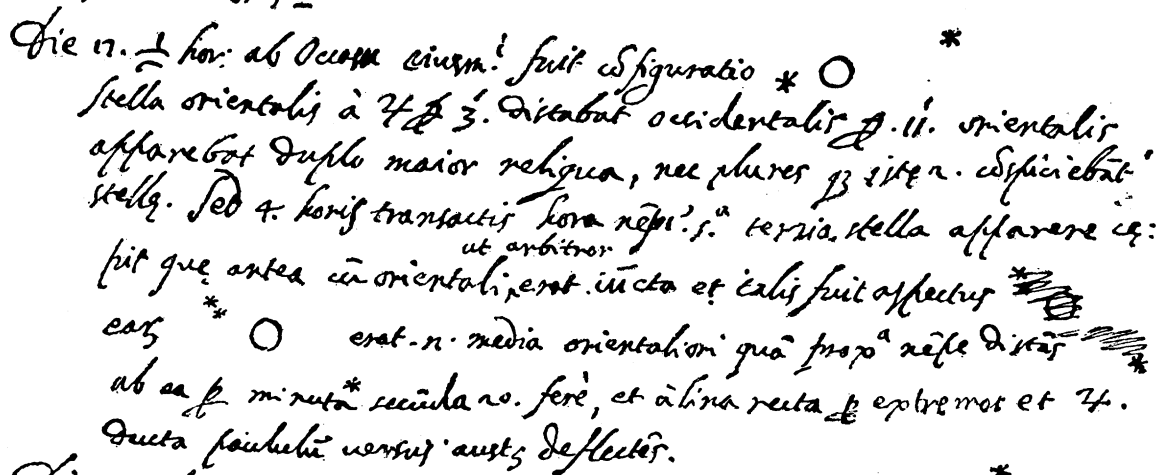 Die 17. 1 hor: ab Occasu eiusm.i fuit cõfiguratio * O *
stella orientalis à ♃ p 3'. distabat occidentalis p. 11. orientalis
apparebat duplo maior reliqua, nec plures qꝫ istę 2. cõspiciebãt'
stellę. sed 4. horis transactis hora nẽpe 5.a tertia stella apparere cę:
pit quę antea cũ orientali, ut arbitror erat iũcta et talis fuit aspectus
earꝫ ** O erat .n. media orientaliori quã propa nẽpe distãs *
ab ea p minuta secũda 20. ferè, et à linea recta p extremos et ♃.
ducta paululũ versus austꝫ deflectẽs.